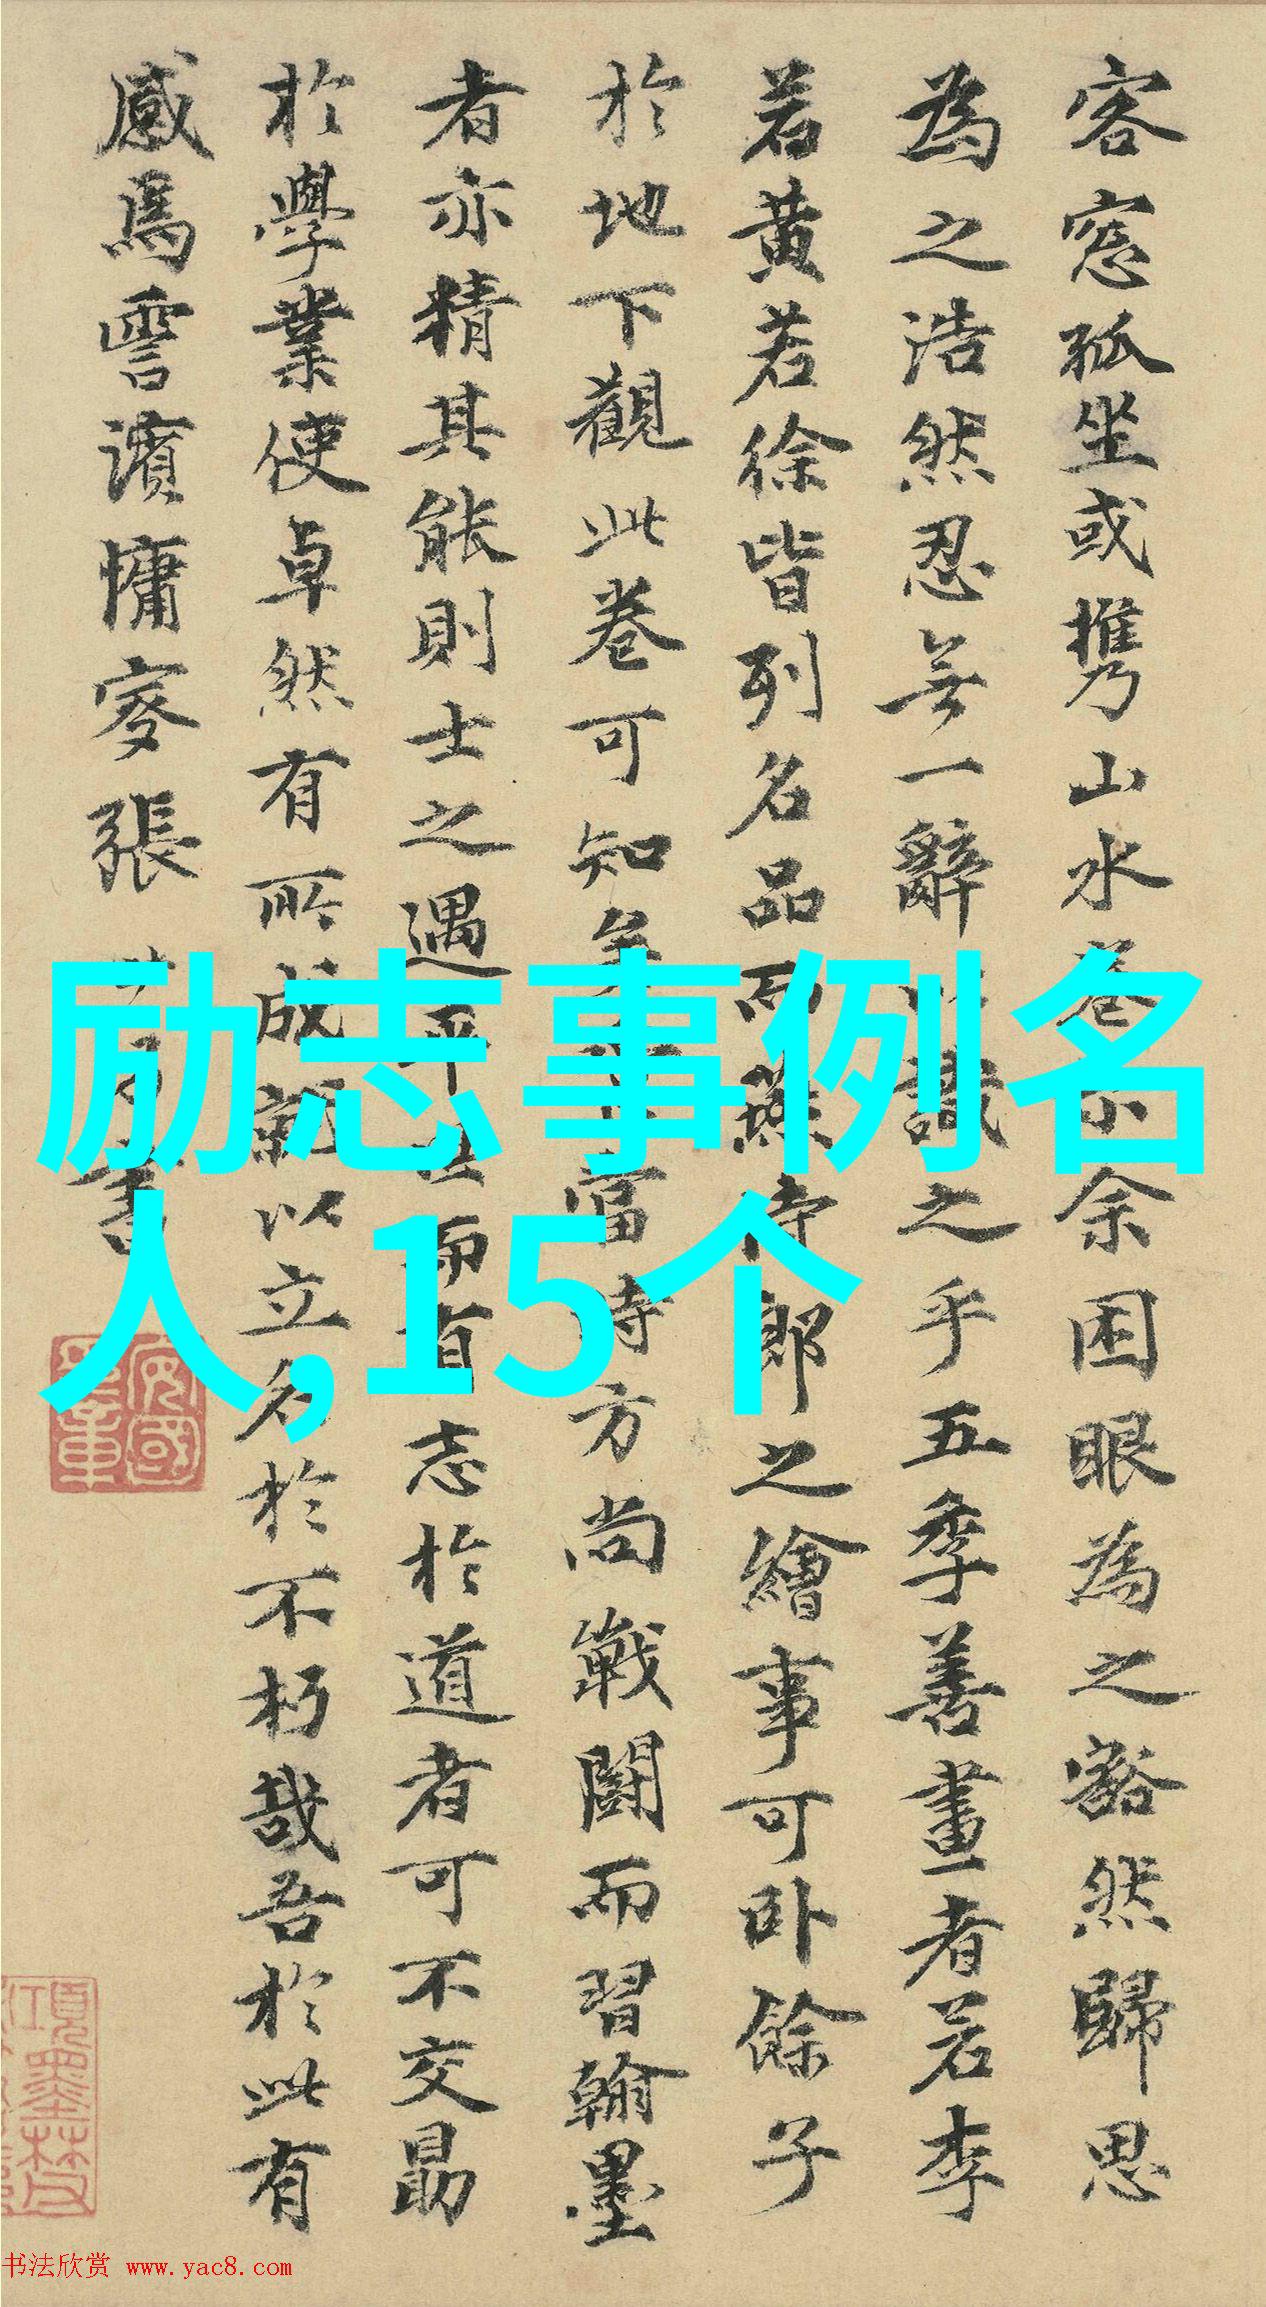 客窓孤坐或携山水卷小余困眼為之豁然歸思
為之浩然忍無一辭以識之乎五季善畫者若李
若黄若徐皆列名品而燕侍郎之繪事可卧餘子
於地下觀此卷可知矣當時方尚戰鬪而習翰墨
者亦精其能則士之遇平世而有志於道者可不交勗
於學業使卓然有所成就以立名於不朽哉吾於此有
感焉雲濱慵叟張
書
励志事例名
人,15个
书法欣赏 www.yac8.com